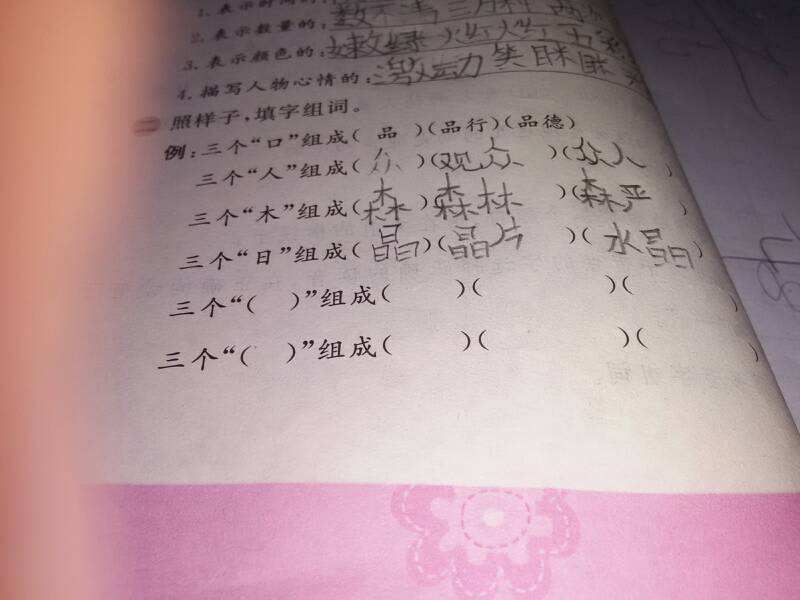 1.表示时间的:
2.表示数量的:数不清 三
3.表示颜色的:嫩绿 火红火红 五
4.描写人物心情的:激动 笑眯眯
二 照样子,填字组词。
例:三个“口”组成(品)(品行)(品德)
三个“人”组成(众)(观众)(众人)
三个“木”组成(森)(森林)(森严)
三个“日”组成(晶)(晶片)(水晶)
三个“( )”组成( )( )( )
三个“( )”组成( )( )( )